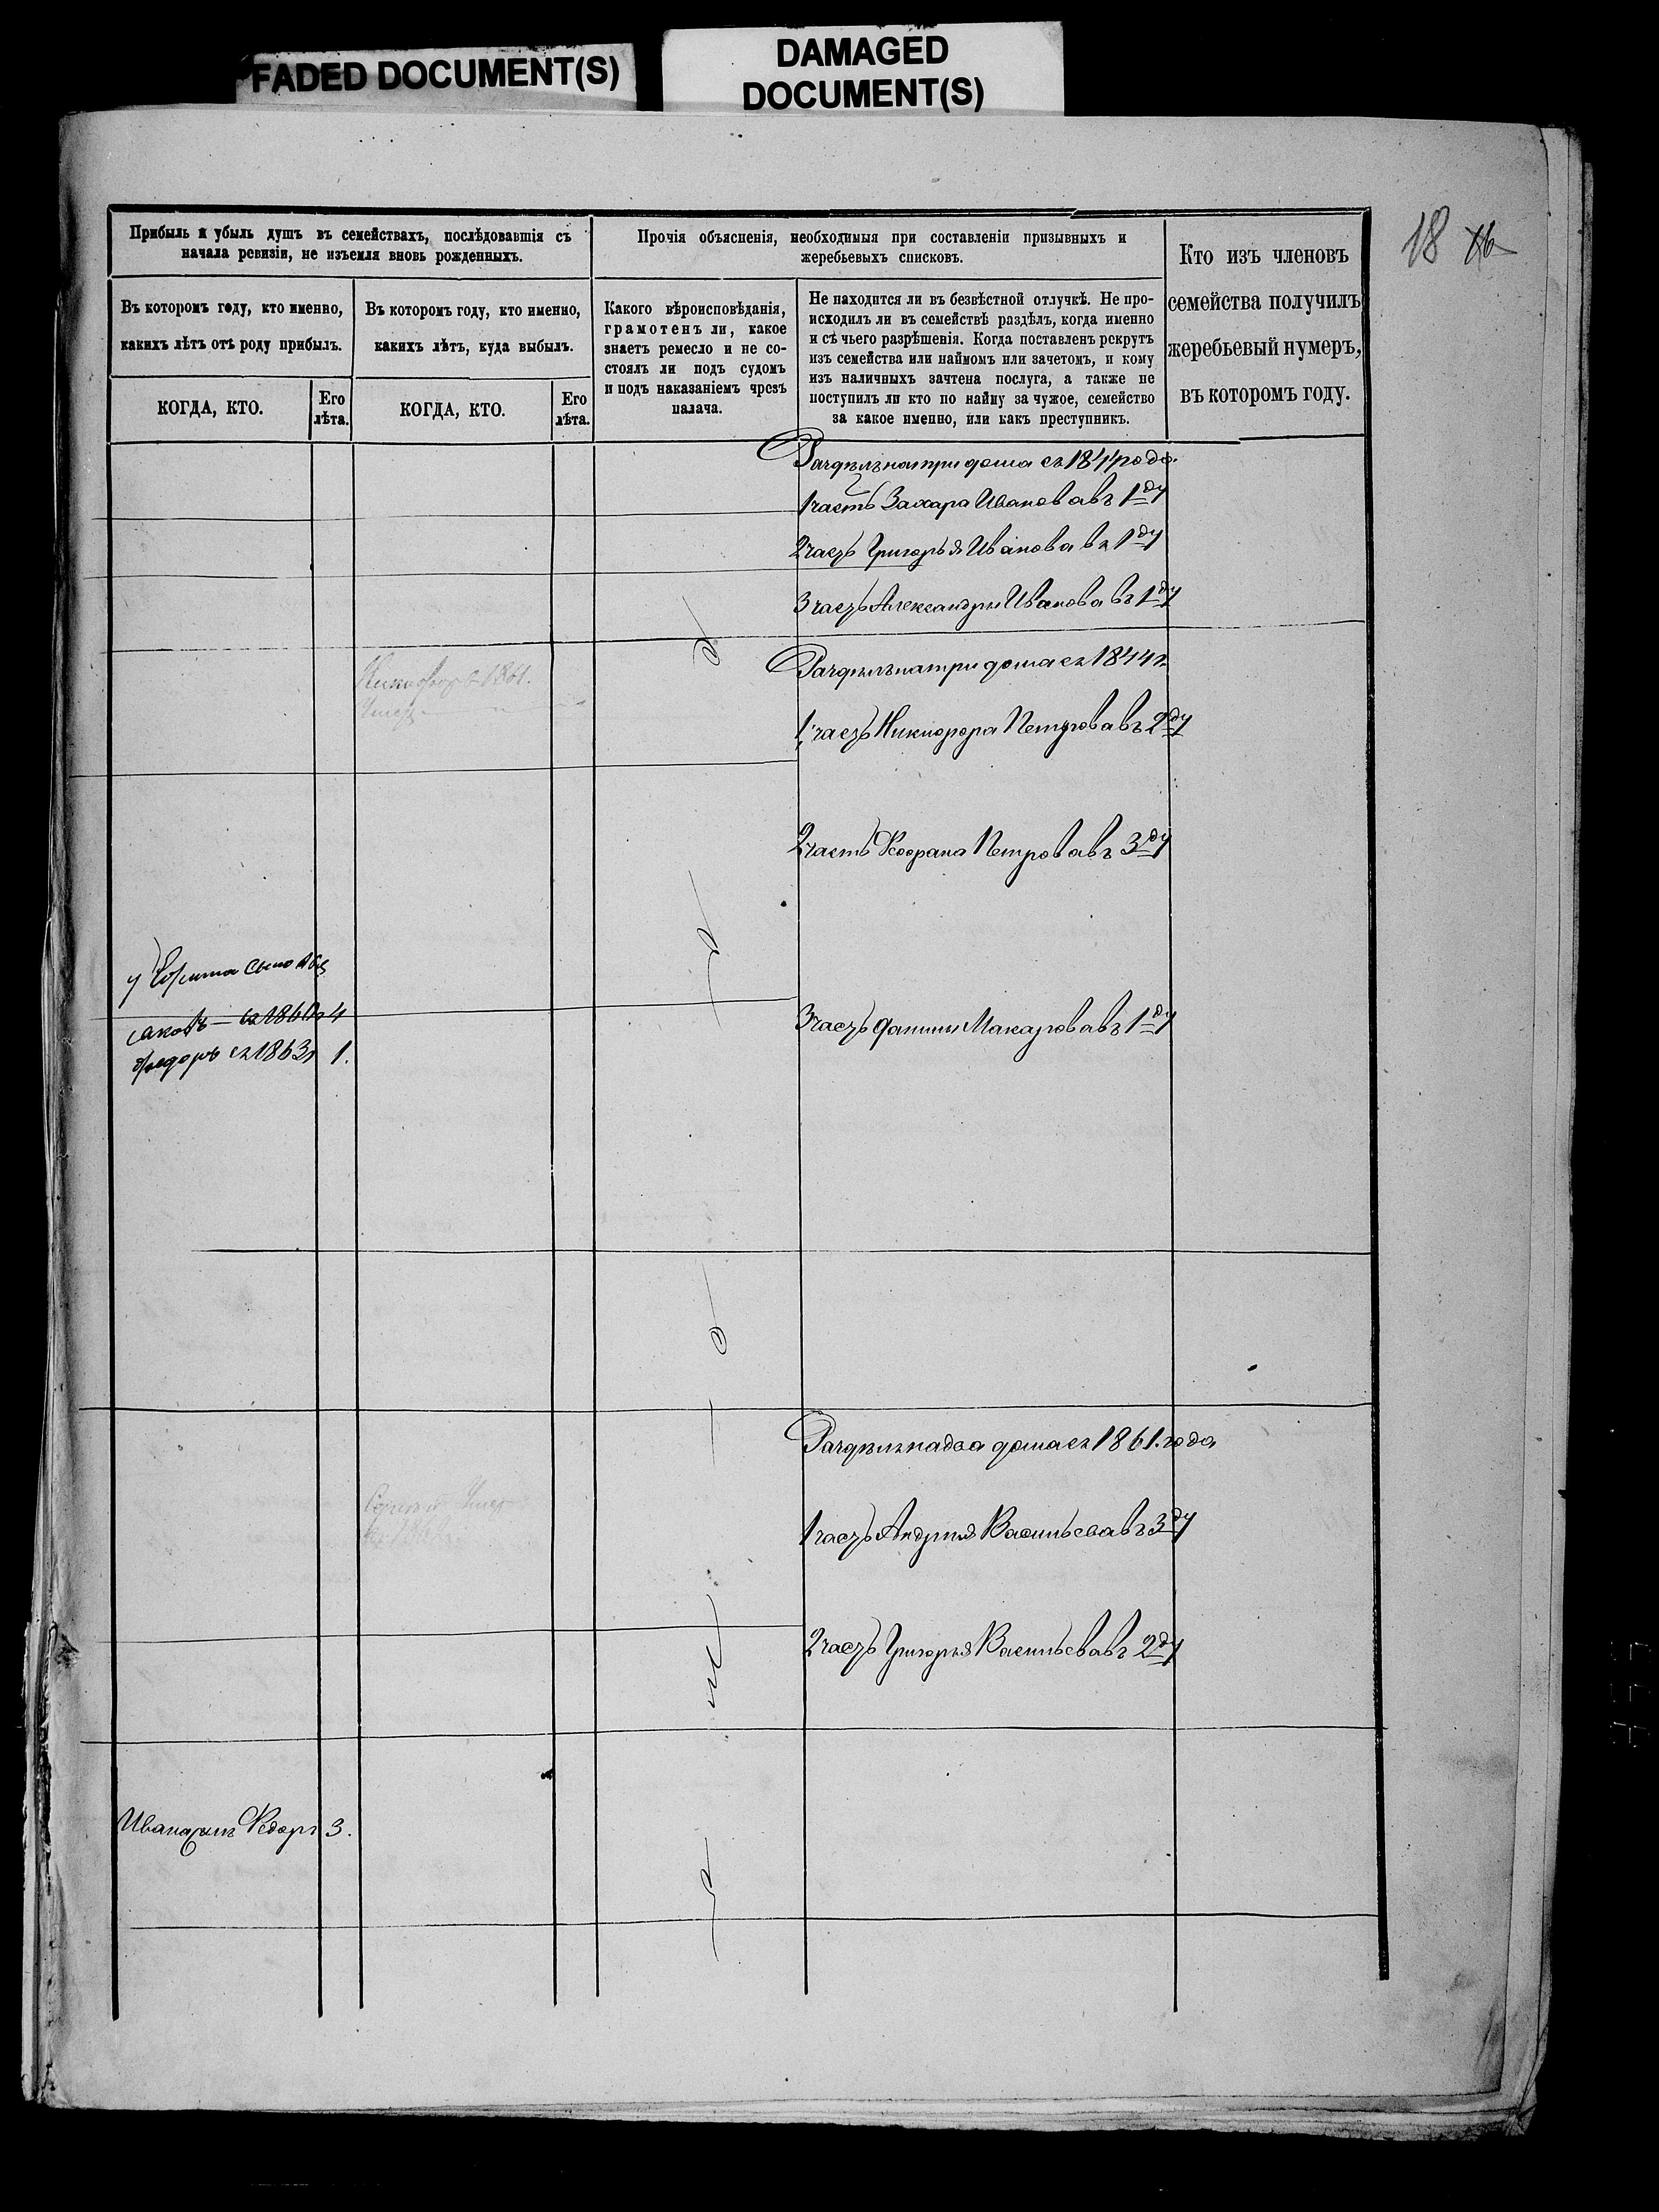 FADED DOCUMENT(S)
DAMAGED
DOCUMENT(S)
18 16
Прибыль и убыль душъ въ семействахъ, послѣдовавшія съ
начала ревизіи, не изъемля вновь рожденныхъ.
Прочія объясненія, необходимыя при составленіи призывныхъ и
жеребьевыхъ списковъ.
Кто изъ членовъ
семейства получилъ
жеребьевый нумеръ,
въ которомъ году.
Въ которомъ году, кто именно,
какихъ лѣтъ отъ роду прибылъ.
Въ которомъ году, кто именно,
какихъ лѣтъ, куда выбылъ.
Какого вѣроисповѣданія,
грамотенъ ли, какое
знаетъ ремесло и не со-
стоялъ ли подъ судомъ
и подъ наказаніемъ чрезъ
палача.
Не находится ли въ безвѣстной отлучкѣ. Не про-
исходилъ ли въ семействѣ раздѣлъ, когда именно
и съ чьего разрѣшенія. Когда поставленъ рекрутъ
изъ семейства или наймомъ или зачетомъ, и кому
изъ наличныхъ зачтена послуга, а также не
поступилъ ли кто по найму за чужое, семейство
за какое именно, или какъ преступникъ.
КОГДА, КТО.
Его
лѣта.
КОГДА, КТО.
Его
лѣта.
Раздѣлъ на три дома съ 1844 года.
1 часть Захара Иванова въ 1 ду
2 часть Григорья Иванова въ 1 ду
3 часть Александры Иванова въ 1 ду
Раздѣлъ на три дома съ 1844 г.
Никифоръ 1861.
Умеръ
1 часть Никифора Петрова въ 2 ду
2 часть Петрова въ 3 ду
у сыновья
съ 1860 4
3 часть Макарова въ 1 ду
Федоръ съ 1863 г 1.
Раздѣлъ на два дома съ 1861. года
Сергѣй Умер
1 часть Андрея Васильева въ 3 ду
2 часть Григорья Васильева въ 2 ду
Ивана сынъ Федоръ 3.